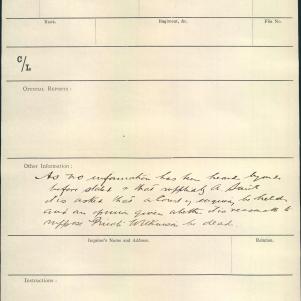 Rank.
Regiment, &c.
File No.
C/L
Official Reports:
Other Information:
As no information has been heard beyond
before stated & that
it is asked that a Court of enquiry be held
and an opinion given whether it is reasonable to
suppose Wilkinson be dead.
Inquirer's Name and Address.
Relation.
Instructions: